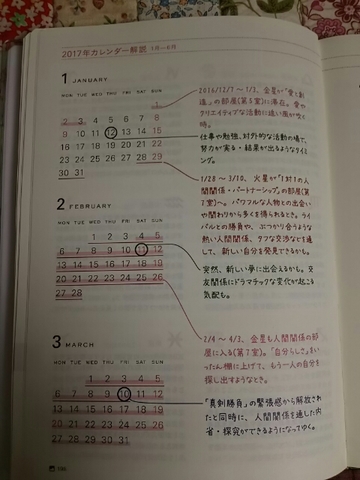 2017年カレンダー解説 1月〜6月
1 JANUARY
MON TUE WED THU FRI SAT SUN
1
2 3 4 5 6 7 8
9 10 11 12 13 14 15
16 17 18 19 20 21 22
23 24 25 26 27 28 29
30 31
2016/12/7 〜 1/3、金星が「愛と創
造」の部屋(第5室)に滞在。愛や
クリエイティブな活動に追い風が吹く
時。
仕事や勉強、対外的な活動の場で、
努力が実る・結果が出るようなタイミ
ング。
1/28 〜 3/10、火星が「1対1の人
間関係・パートナーシップ」の部屋(第
7室)へ。パワフルな人物との出会い
や関わりから多くを得られるとき。ライ
バルとの勝負や、ぶつかり合うような
熱い人間関係、タフな交渉などを通
して、新しい自分を発見できるかも。
2 FEBRUARY
MON TUE WED THU FRI SAT SUN
1 2 3 4 5
6 7 8 9 10 11 12
13 14 15 16 17 18 19
20 21 22 23 24 25 26
27 28
突然、新しい夢に出会えるかも。交
友関係にドラマチックな変化が起こる
気配も。
3 MARCH
MON TUE WED THU FRI SAT SUN
1 2 3 4 5
6 7 8 9 10 11 12
13 14 15 16 17 18 19
20 21 22 23 24 25 26
27 28 29 30 31
2/4 〜 4/3、金星も人間関係の部
屋に入る(第7室)。「自分らしさ」をい
ったん棚に上げて、もう一人の自分を
探し出すようなとき。
「真剣勝負」の緊張感から解放され
たと同時に、人間関係を通した内
省・探究ができるようになってゆく。